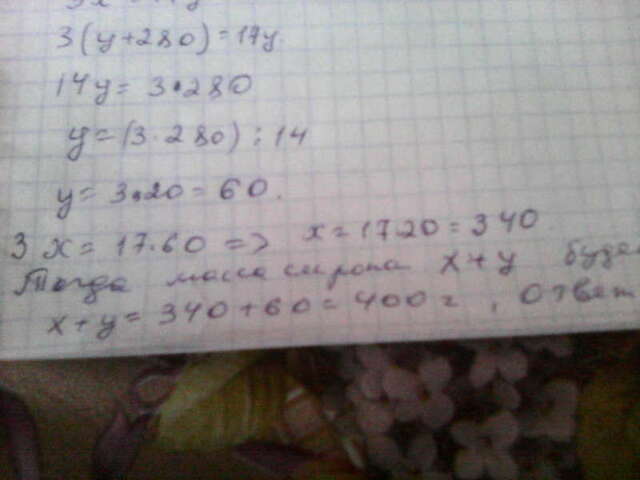 3(y+280)=17y.
14y= 3•280
y=(3·280):14
y= 3•20=60.
3x=17·60 => x=17·20=340.
Тогда масса сиропа x+y буде
x+y=340+60=400г, Ответ